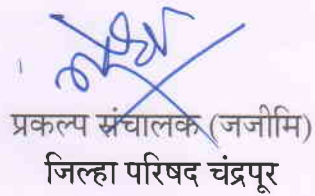 प्रकल्प संचालक (जजीमि)
जिल्हा परिषद चंद्रपूर